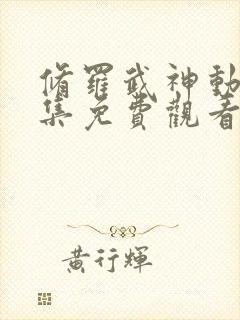 脩羅武神動
集免費觀看
黃行輝